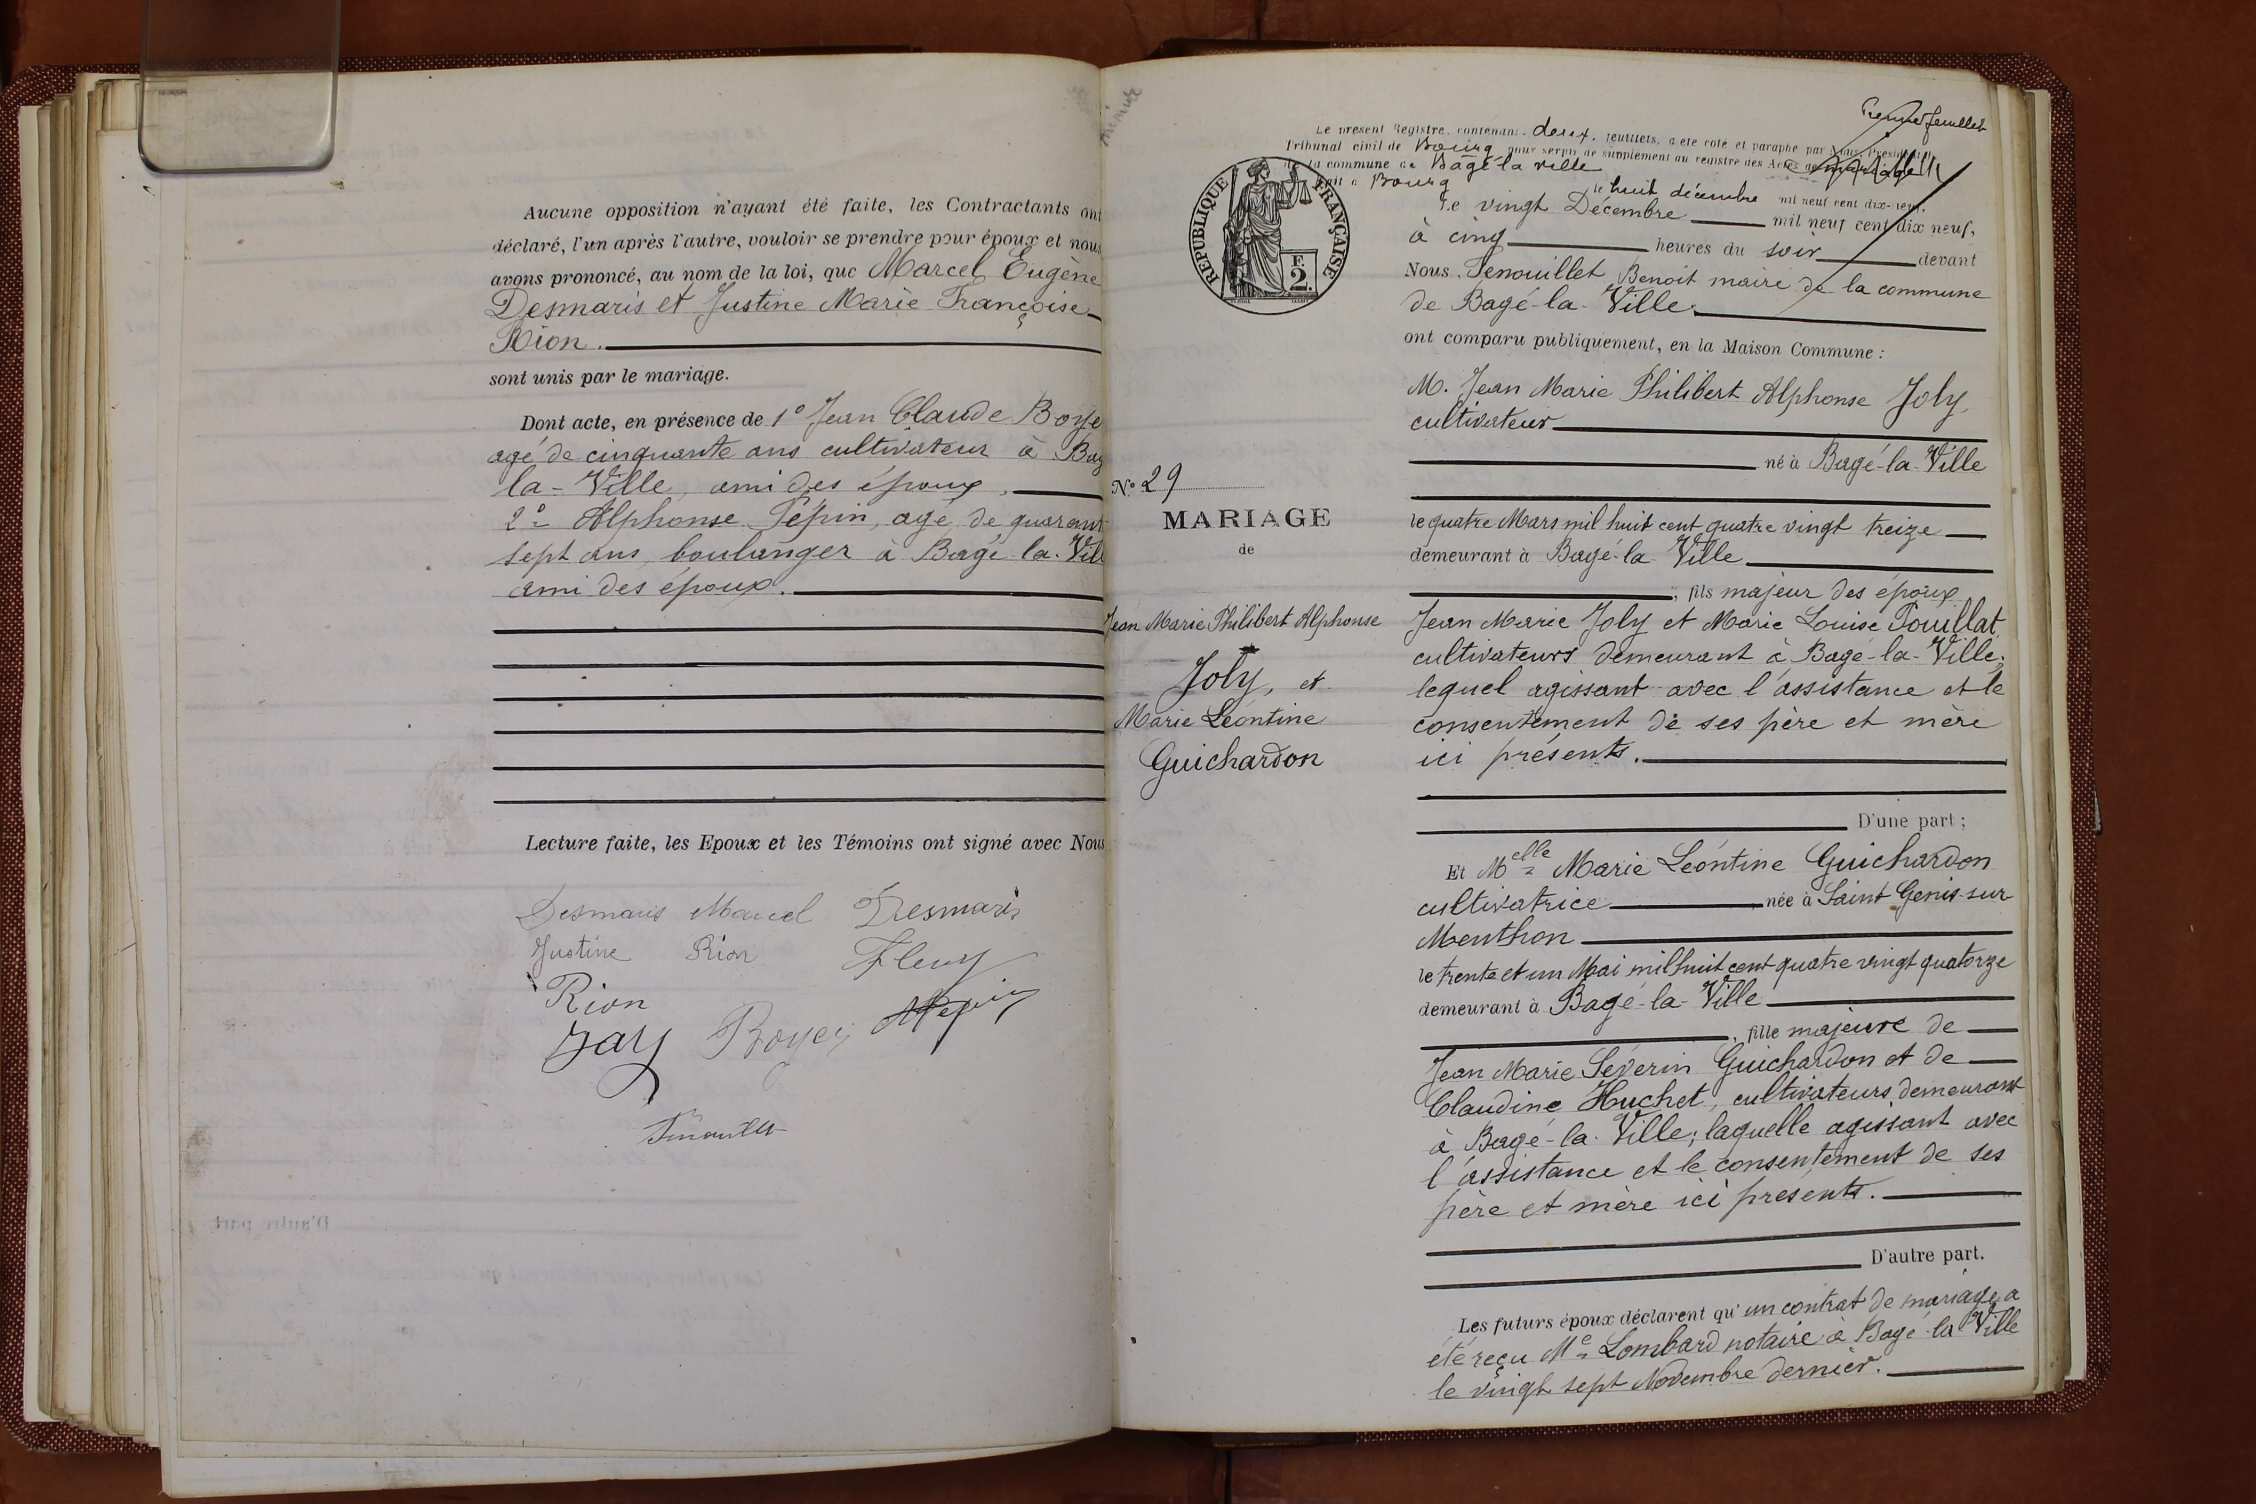 Aucune opposition n'ayant été faite, les Contractants ont
déclaré, l'un après l'autre, vouloir se prendre pour époux et nous
avons prononcé, au nom de la loi, que Marcel Eugène
Desmaris et Justine Marie Françoise
Rion.
sont unis par le mariage.
Dont acte, en présence de 1° Jean Claude Boye
agé de cinquante ans cultivateur à Bag
la-Ville, ami des époux,
2° Alphonse Pépin, agé de quarant
sept ans, boulanger à Bagé-la-Vill
ami des époux.
Lecture faite, les Epoux et les Témoins ont signé avec Nous
Desmaris Marcel Desmaris
Justine Rion Fleury
Rion
Jay Boyer APépin
minute
Premier feuillet
Le présent Registre, contenant deux feuillets, a été coté et paraphé par Nous, Président du
Tribunal civil de Bourg pour servir de supplément au registre des Actes de mariage
de la commune de Bâgé-la ville
Fait à Bourg le huit décembre mil neuf cent dix-neuf.
RÉPUBLIQUE FRANÇAISE
F.
2.
Le vingt Décembre mil neuf cent dix neuf,
à cinq heures du soir devant
Nous Fenouillet Benoit maire de la commune
de Bagé-la-Ville
ont comparu publiquement, en la Maison Commune :
M. Jean Marie Philibert Alphonse Joly
cultivateur
né à Bagé-la-Ville
le quatre Mars mil huit cent quatre vingt treize
demeurant à Bagé-la-Ville
; fils majeur des époux
Jean Marie Joly et Marie Louise Pouillat
cultivateurs demeurant à Bagé-la-Ville;
lequel agissant avec l'assistance et le
consentement de ses père et mère
ici présents.
D'une part ;
N° 29
MARIAGE
de
Jean Marie Philibert Alphonse
Joly, et
Marie Léontine
Guichardon
Et Melle Marie Léontine Guichardon
cultivatrice née à Saint Genis-sur
Menthon
le trente et un Mai mil huit cent quatre vingt quatorze
demeurant à Bagé-la-Ville
, fille majeure de
Jean Marie Séverin Guichardon et de
Claudine Huchet, cultivateurs demeurant
à Bagé-la-Ville; laquelle agissant avec
l'assistance et le consentement de ses
père et mère ici présents.
D'autre part.
Les futurs époux déclarent qu'un contrat de mariage a
été reçu Me Lombard notaire à Bagé-la-Ville
le vingt sept Novembre dernier.